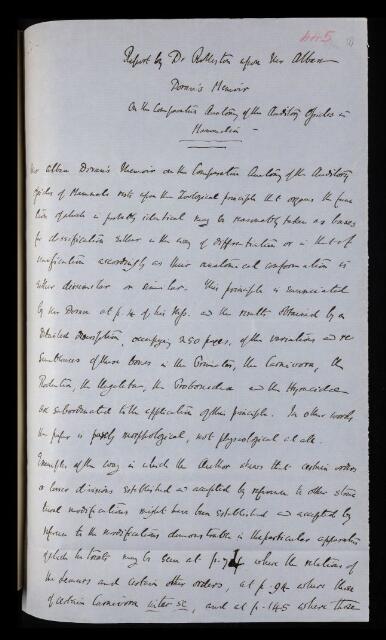 445
Report by Dr Rolleston upon Mr Alban
Doran's Memoir
On the Comparative Anatomy of the Auditory Ossicles in
Mammalia –
Mr Alban Doran's Memoir on the Comparative Anatomy of the Auditory
Ossicles of Mammals rests upon the Zoological principle that organs the func
tion of which is probably identical may be reasonably taken as bases
for classification either in the way of differentiation or in that of
unification accordingly as their anatomical conformation is
either dissimilar or similar. This principle is enunciated
by Mr Doran at p. 4 of his Msp. and the results obtained by a
detailed description, occupying 250 pages, of the variations and re
semblances of these bones in the Primates, the Carnivora, the
Rodentia, the Ungulata, the Proboscidea and the Hyracoidea
are subordinated to the application of this principle. In other words
the paper is purely morphological, not physiological at all.
Examples of the way in which the Author shews that certain orders
or lesser divisions established and accepted by reference to other struc
tural modifications might have been established and accepted by
reference to the modifications demonstrable in the particular apparatus
of which he treats may be seen at p. 74 where the relations of
the Lemurs and certain other orders, at p. 94 where those
of certain Carnivora inter se, and at p. 145 where those